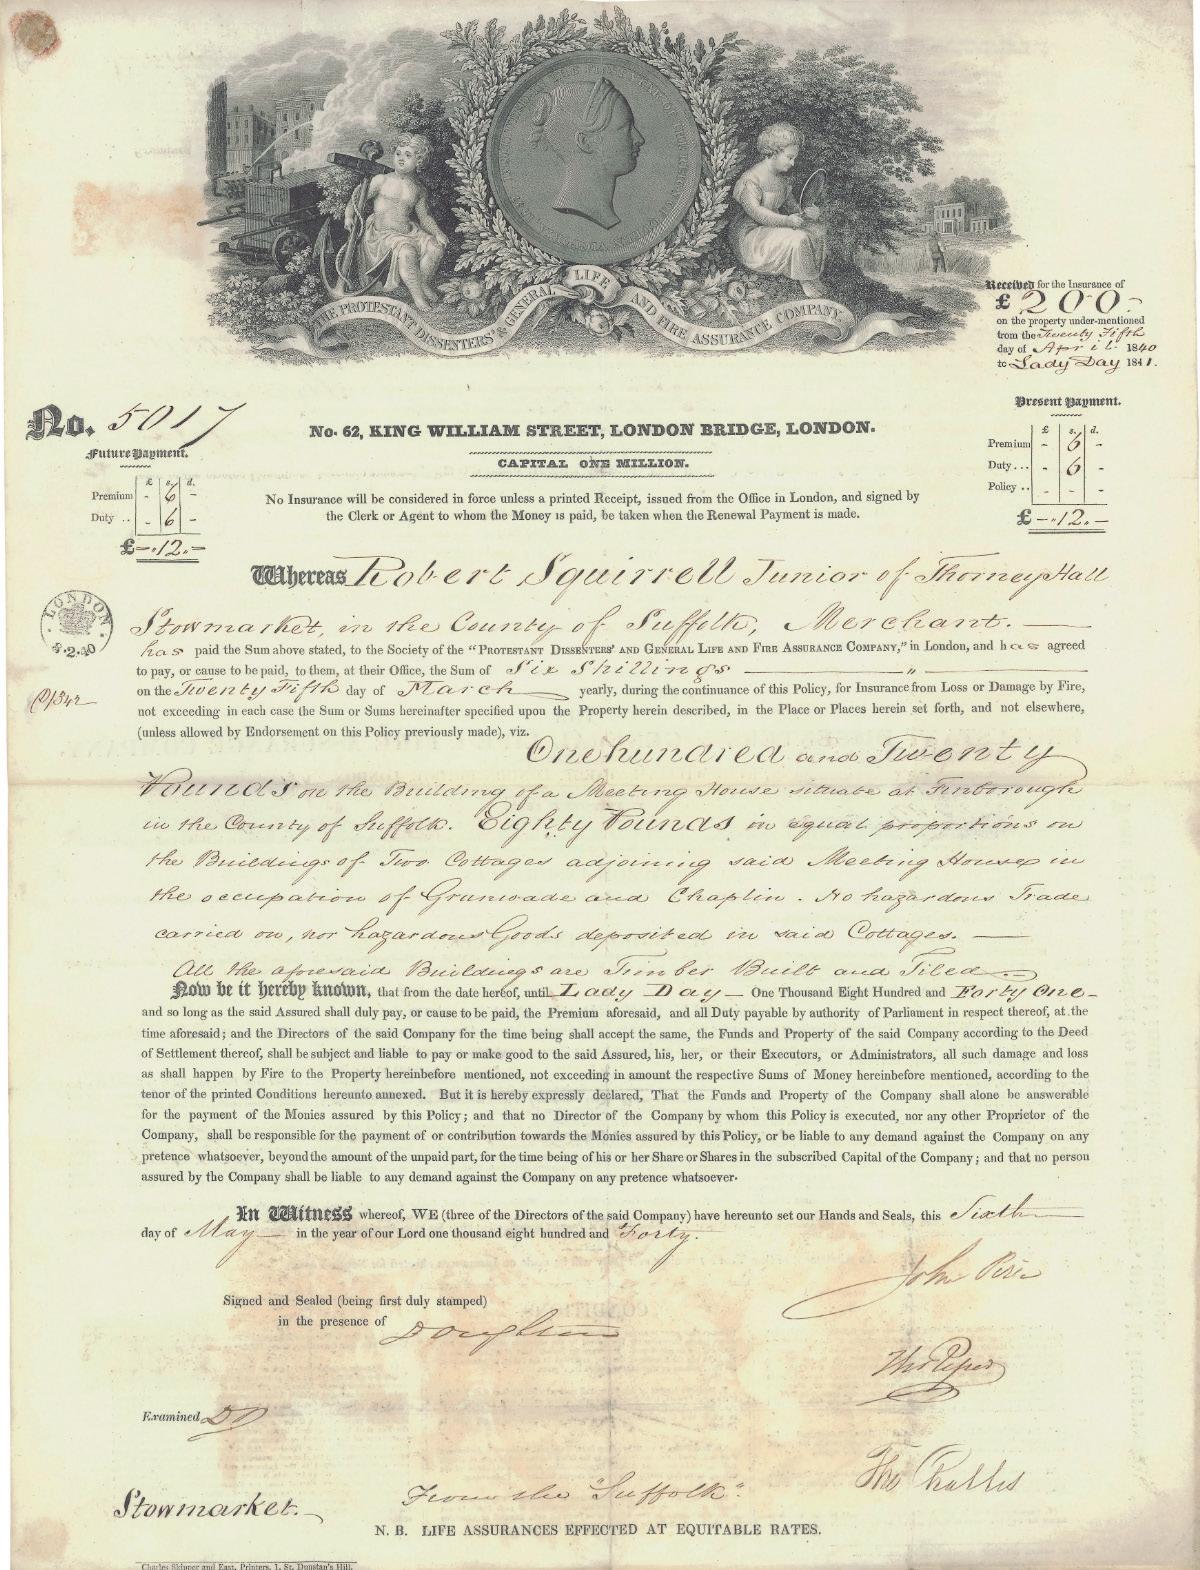 THE PROTESTANT DISSENTERS' & GENERAL LIFE AND FIRE ASSURANCE COMPANY
Received for the Insurance of
£ 200 -
on the property under-mentioned
from the Twenty Fifth
day of April 1840
to Lady Day 1841.
No. 5017
No. 62, KING WILLIAM STREET, LONDON BRIDGE, LONDON.
CAPITAL ONE MILLION.
No Insurance will be considered in force unless a printed Receipt, issued from the Office in London, and signed by
the Clerk or Agent to whom the Money is paid, be taken when the Renewal Payment is made.
Future Payment.
£ s. d.
Premium - 6 -
Duty .. - 6 -
£ - .. 12 .. -
Present Payment.
£ s. d.
Premium - 6 -
Duty ... - 6 -
Policy .. - - -
£ - .. 12 .. -
Whereas Robert Squirrell Junior of Thorney Hall
Stowmarket, in the County of Suffolk, Merchant.
LONDON
5.2.40
has paid the Sum above stated, to the Society of the "PROTESTANT DISSENTERS' AND GENERAL LIFE AND FIRE ASSURANCE COMPANY," in London, and has agreed
to pay, or cause to be paid, to them, at their Office, the Sum of Six Shillings "
on the Twenty Fifth day of March yearly, during the continuance of this Policy, for Insurance from Loss or Damage by Fire,
not exceeding in each case the Sum or Sums hereinafter specified upon the Property herein described, in the Place or Places herein set forth, and not elsewhere,
(unless allowed by Endorsement on this Policy previously made), viz.
One hundred and Twenty
Pounds on the Building of a Meeting House situate at Finborough
in the County of Suffolk. Eighty Pounds in equal proportions on
the Buildings of Two Cottages adjoining said Meeting House in
the occupation of Grunwade and Chaplin. No hazardous Trade
carried on, nor hazardous Goods deposited in said Cottages. —
All the aforesaid Buildings are Timber Built and Tiled
Now be it hereby known, that from the date hereof, until Lady Day - One Thousand Eight Hundred and Forty One -
and so long as the said Assured shall duly pay, or cause to be paid, the Premium aforesaid, and all Duty payable by authority of Parliament in respect thereof, at the
time aforesaid; and the Directors of the said Company for the time being shall accept the same, the Funds and Property of the said Company according to the Deed
of Settlement thereof, shall be subject and liable to pay or make good to the said Assured, his, her, or their Executors, or Administrators, all such damage and loss
as shall happen by Fire to the Property hereinbefore mentioned, not exceeding in amount the respective Sums of Money hereinbefore mentioned, according to the
tenor of the printed Conditions hereunto annexed. But it is hereby expressly declared, That the Funds and Property of the Company shall alone be answerable
for the payment of the Monies assured by this Policy; and that no Director of the Company by whom this Policy is executed, nor any other Proprietor of the
Company, shall be responsible for the payment of or contribution towards the Monies assured by this Policy, or be liable to any demand against the Company on any
pretence whatsoever, beyond the amount of the unpaid part, for the time being of his or her Share or Shares in the subscribed Capital of the Company; and that no person
assured by the Company shall be liable to any demand against the Company on any pretence whatsoever.
In Witness whereof, WE (three of the Directors of the said Company) have hereunto set our Hands and Seals, this Sixth
day of May in the year of our Lord one thousand eight hundred and Forty.
John Pirie
Signed and Sealed (being first duly stamped)
in the presence of
Tho Piper
Examined
Tho Challis
Stowmarket.
From the "Suffolk".
N. B. LIFE ASSURANCES EFFECTED AT EQUITABLE RATES.
Charles Skipper and East, Printers, 1, St. Dunstan's Hill.